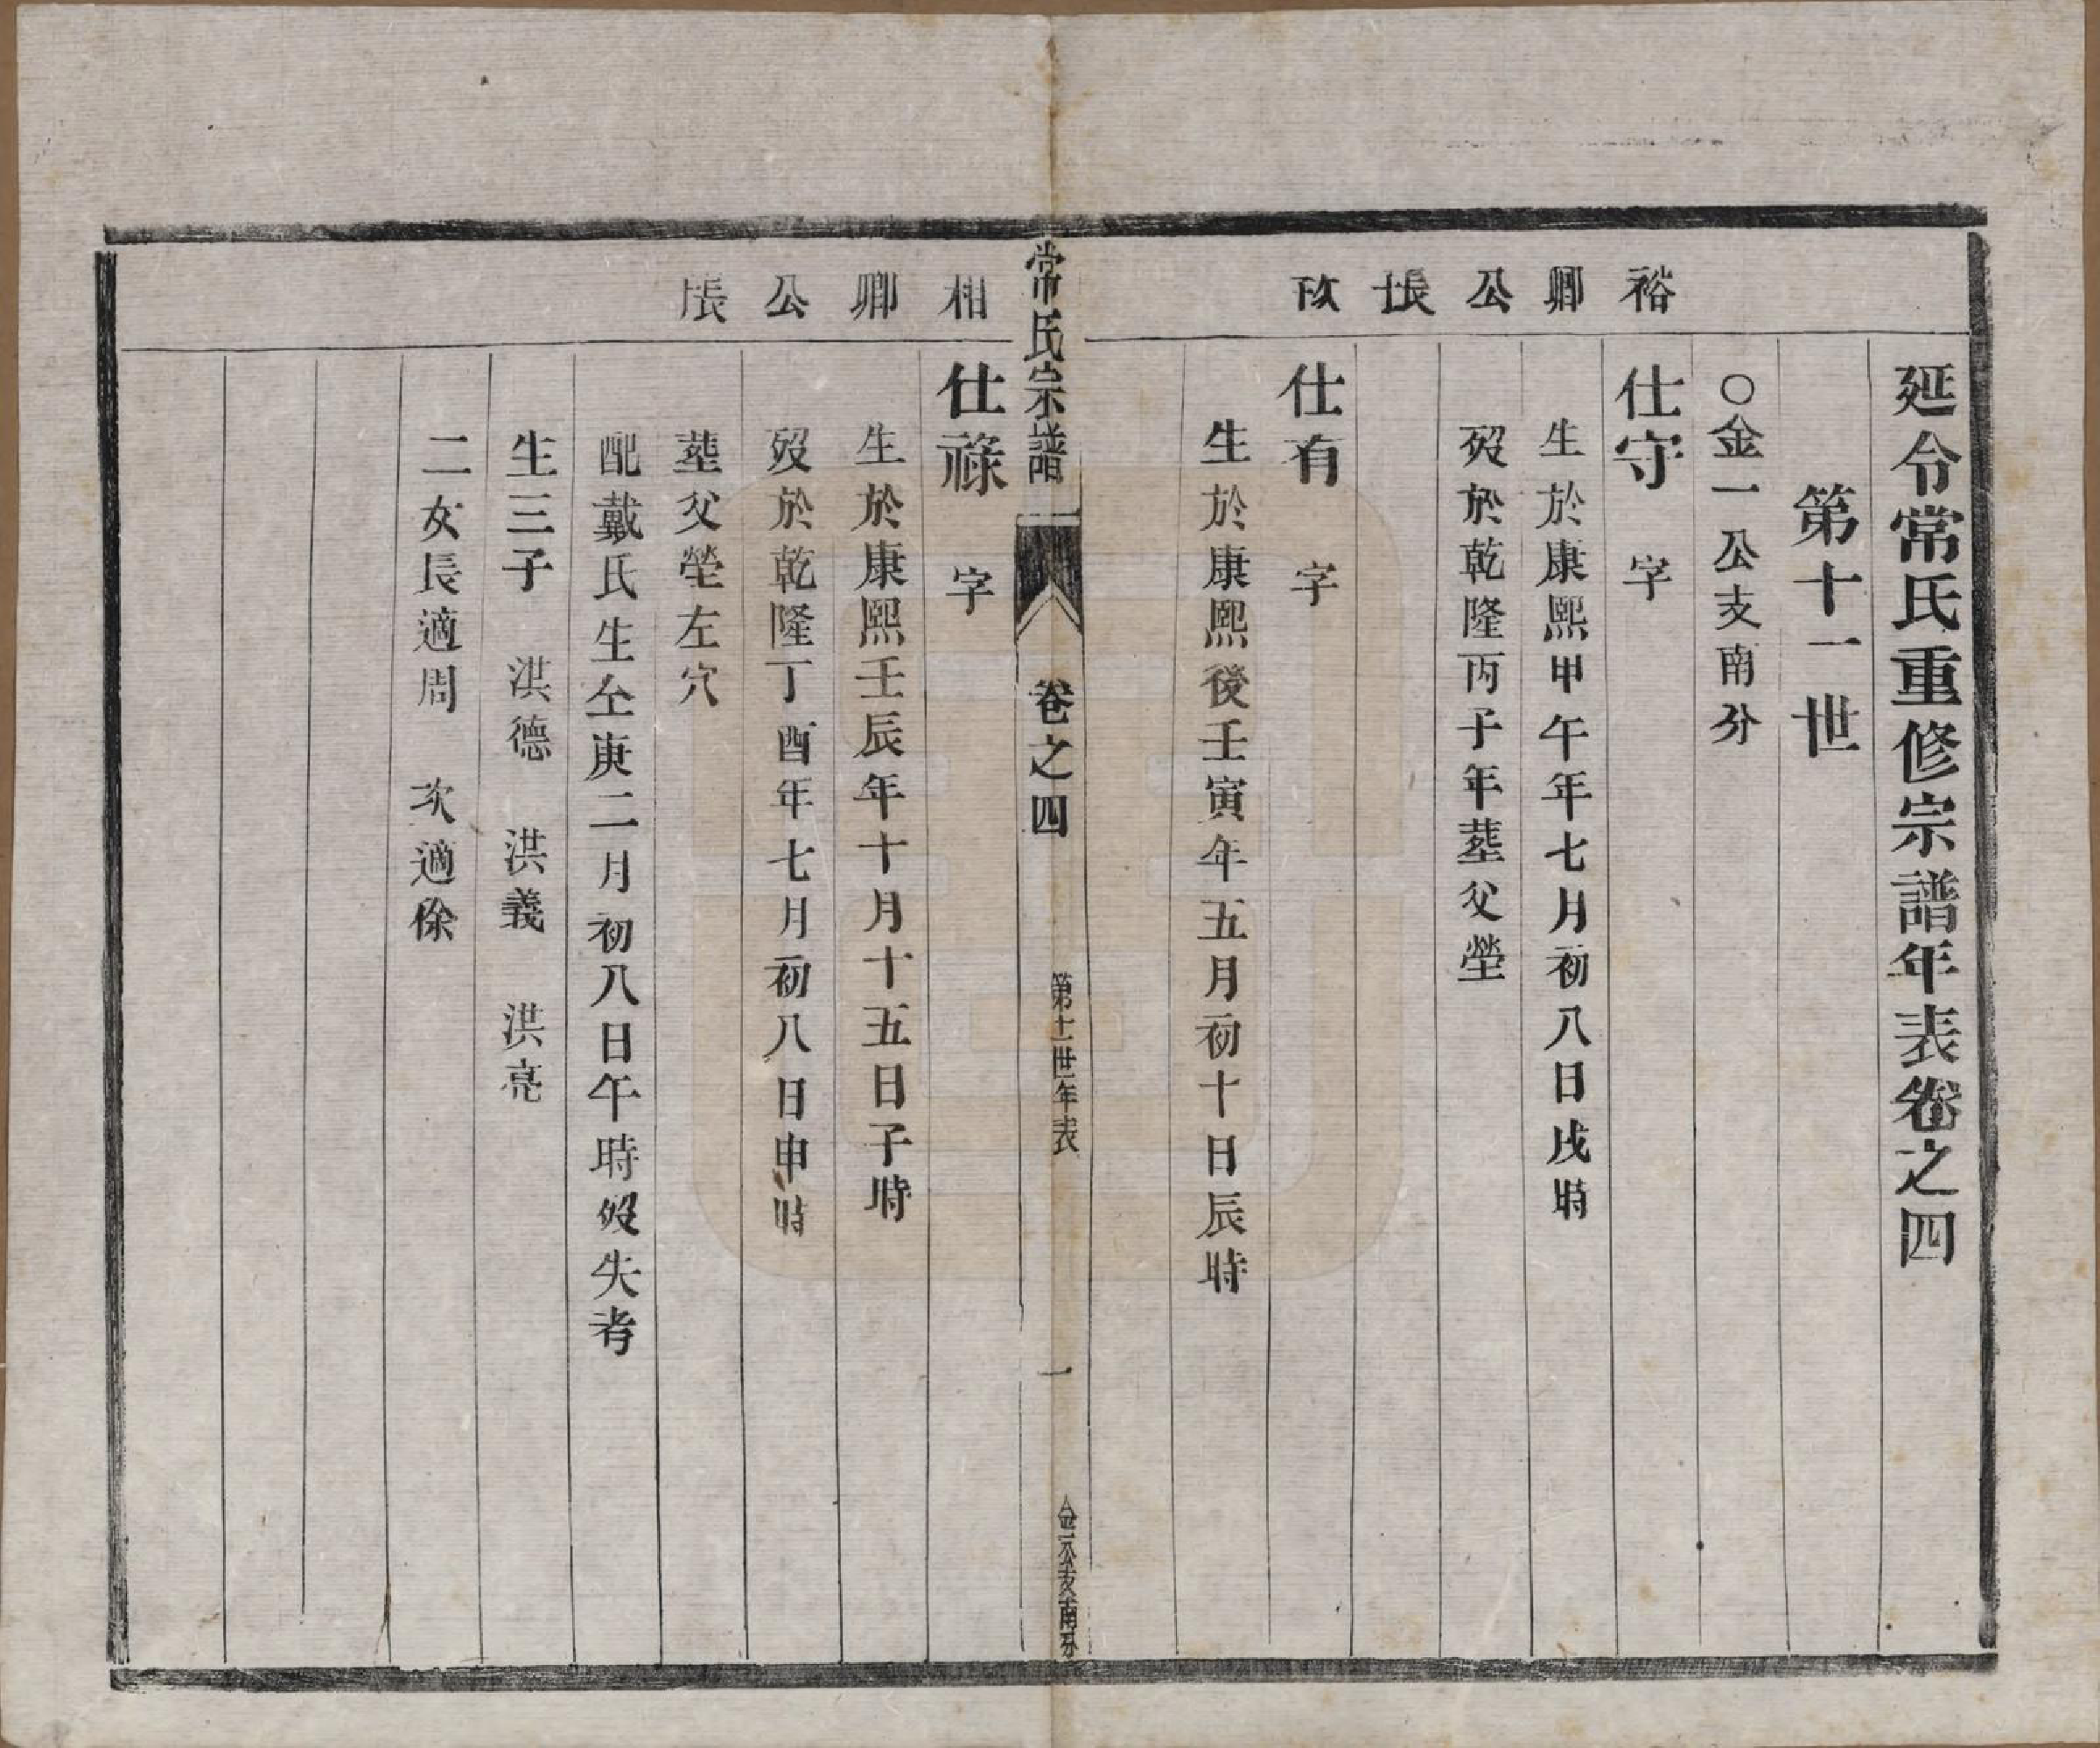 延令常氏重修宗譜年表卷之四
第十一世
○金一公支南分
裕卿公長
仕守 字
生於康熙甲午年七月初八日戌時
歿於乾隆丙子年葬父塋
次
仕有 字
生於康熙後壬寅年五月初十日辰時
常氏宗譜 卷之四 第十一世年表 一 金一公支南分
相卿公長
仕祿 字
生於康熙壬辰年十月十五日子時
歿於乾隆丁酉年七月初八日申時
葬父塋左穴
配戴氏生仝庚二月初八日午時歿失考
生三子 洪德 洪義 洪亮
二女長適周 次適徐